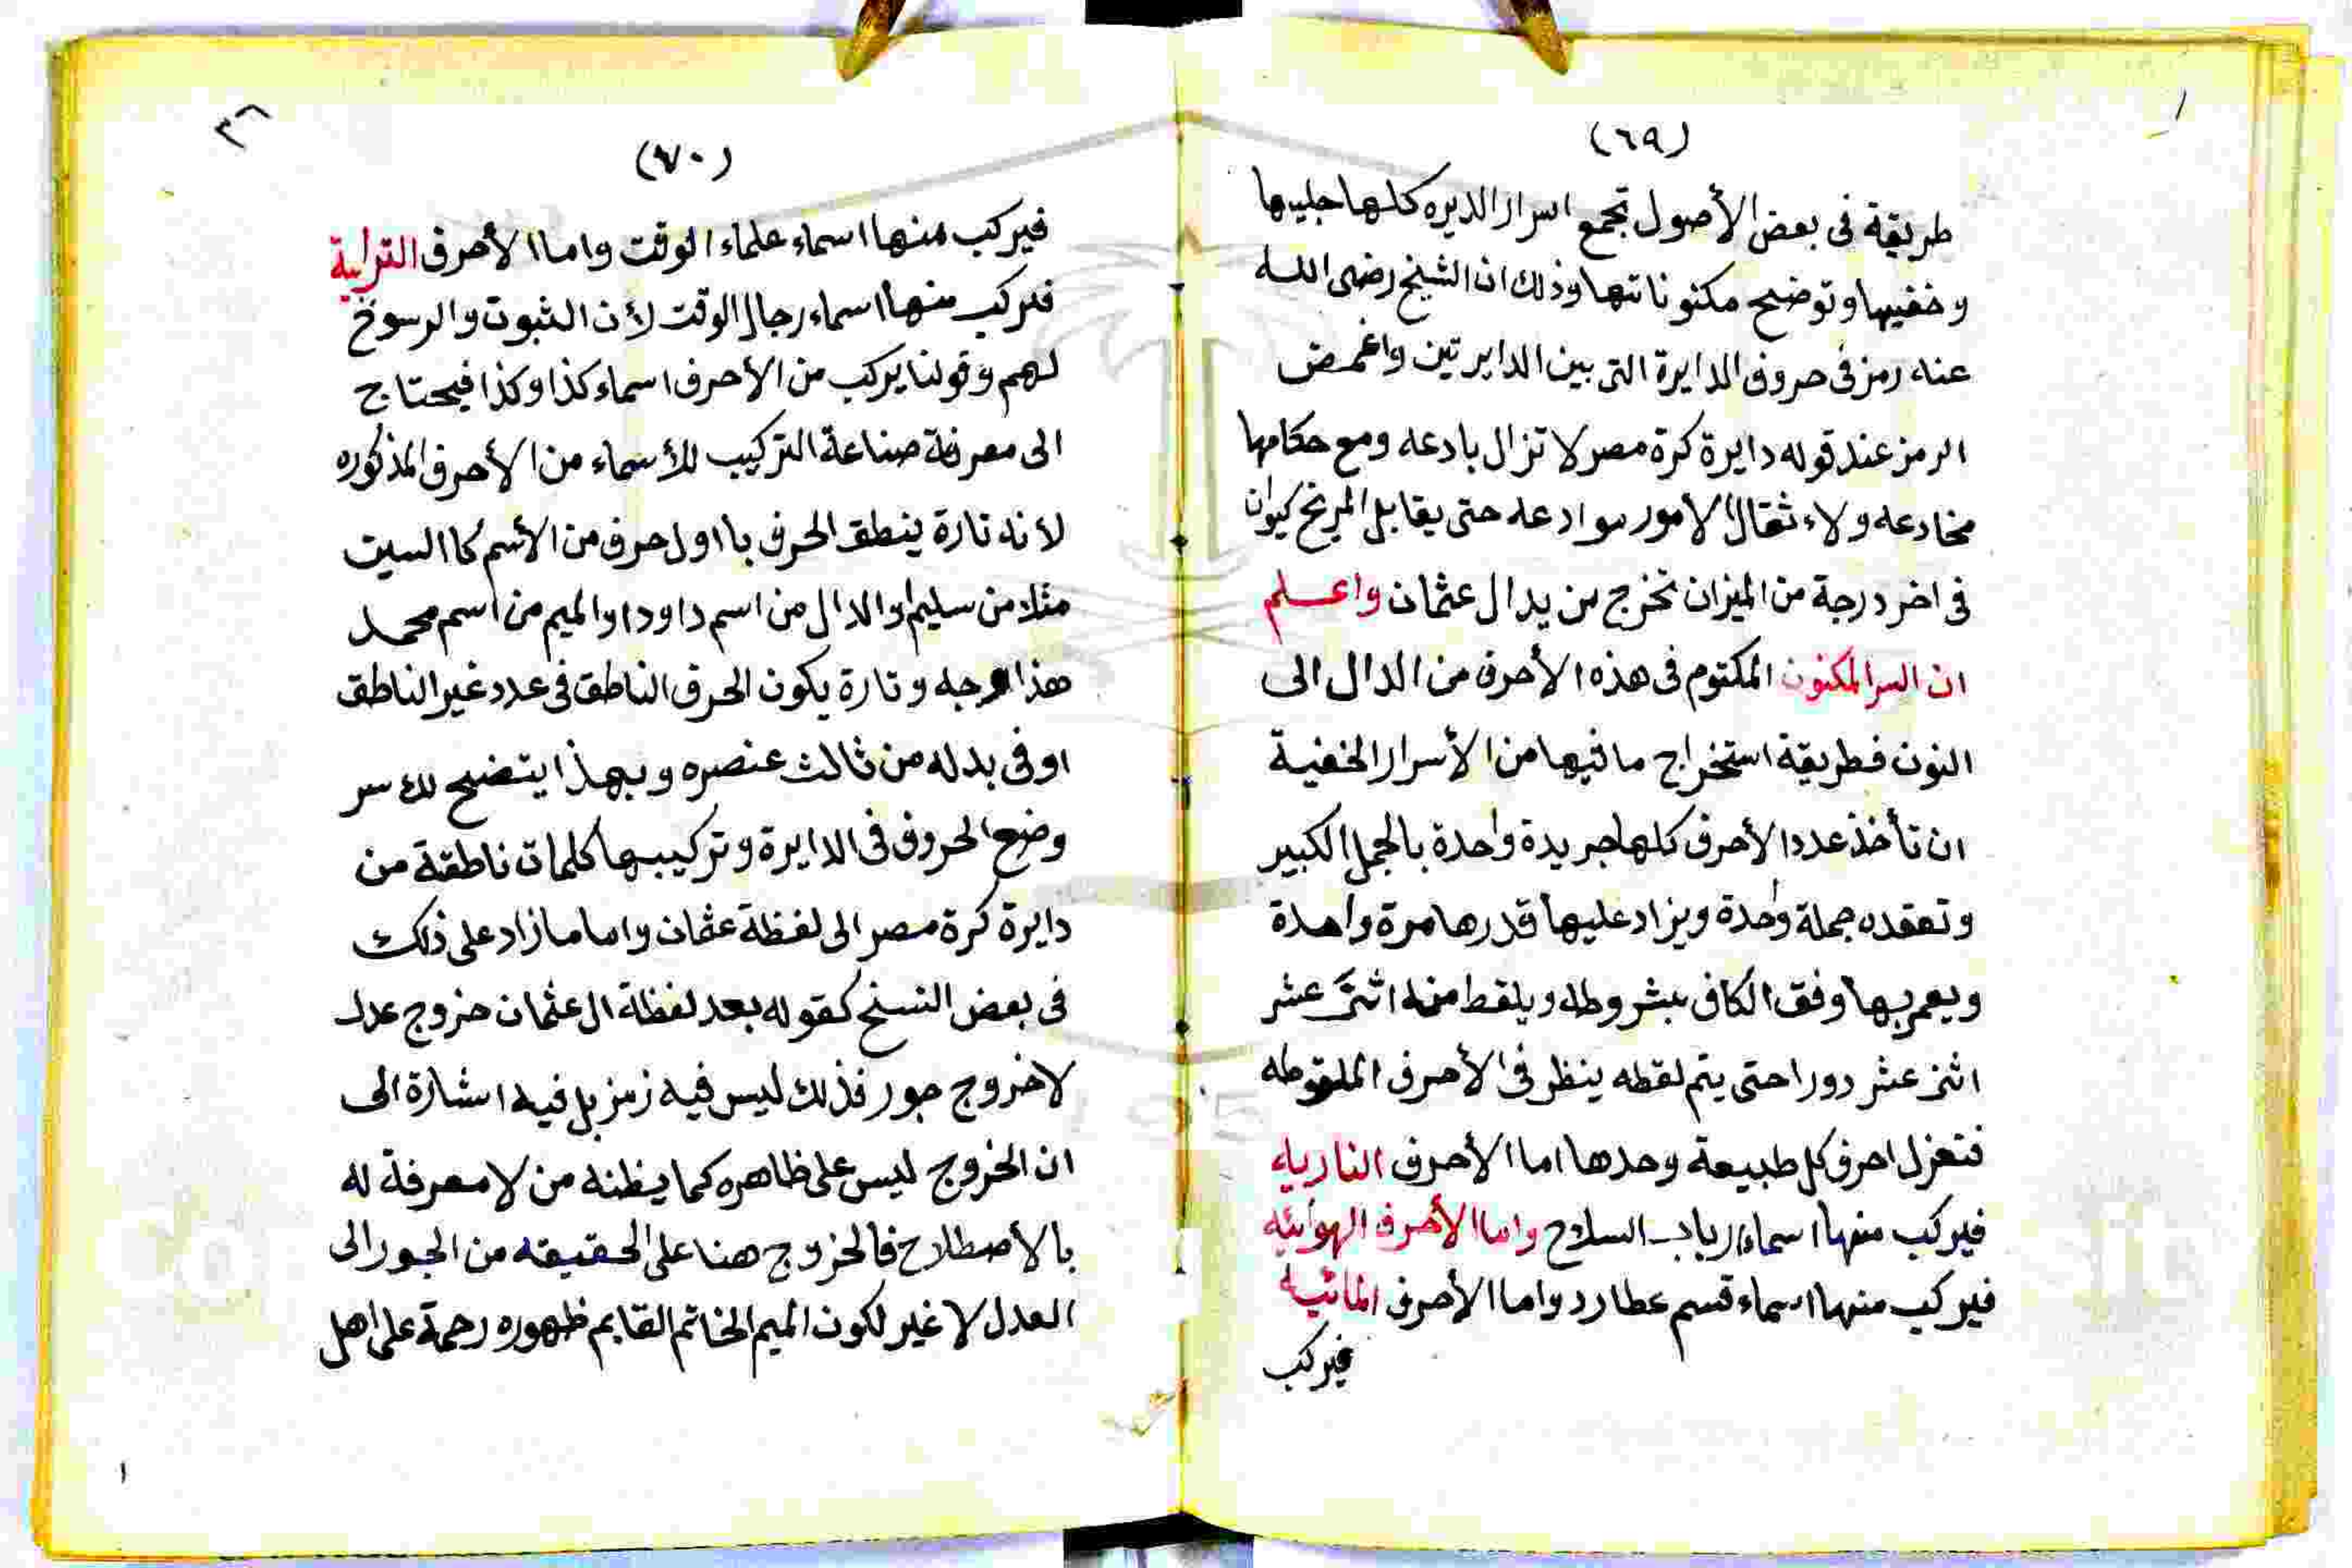 (٦٩)
طريقة فى بعض الأصول تجمع اسرار الديره كلها جليها
وخفيها وتوضيح مكنوناتها وذلك ان الشيخ رضى الله
عنه رمز فى حروف الدايرة التى بين الدايرتين واغمض
الرمز عند قوله دايرة كرة مصر لا تزال بادعه ومع حكامها
مخادعه ولاء ثقال الامور موادعه حتى يقابل المريخ كيوان
فى اخر درجة من الميزان تخرج من يد ال عثمان واعلم
ان السر المكنون المكتوم فى هذه الأحرف من الدال الى
النون فطريقة استخراج ما فيها من الأسرار الخفية
ان تأخذ عدد الأحرف كلها جريدة واحدة بالجمل الكبير
وتعقده جملة واحدة ويزاد عليها قدرها مرة واحدة
ويعمر بها وفق الكافى بشروطه ويلقط منه اثنى عشر
اثنى عشر دورا حتى يتم لقطه ينظر فى الأحرف الملقوطه
فتعزل احرف كل طبيعة وحدها اما الأحرف الناريه
فيركب منها اسماء ارباب السلاح واما الأحرف الهوائيه
فيركب منها اسماء قسم عطارد واما الأحرف المائيه
فيركب
٣٦
(٧٠)
فيركب منها اسماء علماء الوقت واما الأحرف الترابية
فيركب منها اسماء رجال الوقت لأن الثبوت والرسوخ
لهم وقولنا يركب من الأحرف اسماء كذا وكذا فيحتاج
الى معرفة صناعة التركيب للأسماء من الأحرف المذكوره
لأنه تارة ينطق الحرف باول حرف من الأسم كالسين
مثلا من سليم او الدال من اسم داود او الميم من اسم محمد
هذا وجه وتارة يكون الحرف الناطق فى عدد غير الناطق
او فى بدله من ثالث عنصره وبهذا يتضح لك سر
وضع الحروف فى الدايرة وتركيبها كلمات ناطقة من
دايرة كرة مصر الى لفظة عثمان واما ما زاد على ذلك
فى بعض النسخ كقوله بعد لفظة ال عثمان خروج عدل
لا خروج جور فذلك ليس فيه رمز بل فيه اشارة الى
ان الخروج ليس على ظاهره كما يظنه من لا معرفة له
بالأصطلاح فالخروج هنا على الحقيقه من الجور الى
العدل لا غير لكون الميم الخاتم القايم ظهوره رحمة على اهل